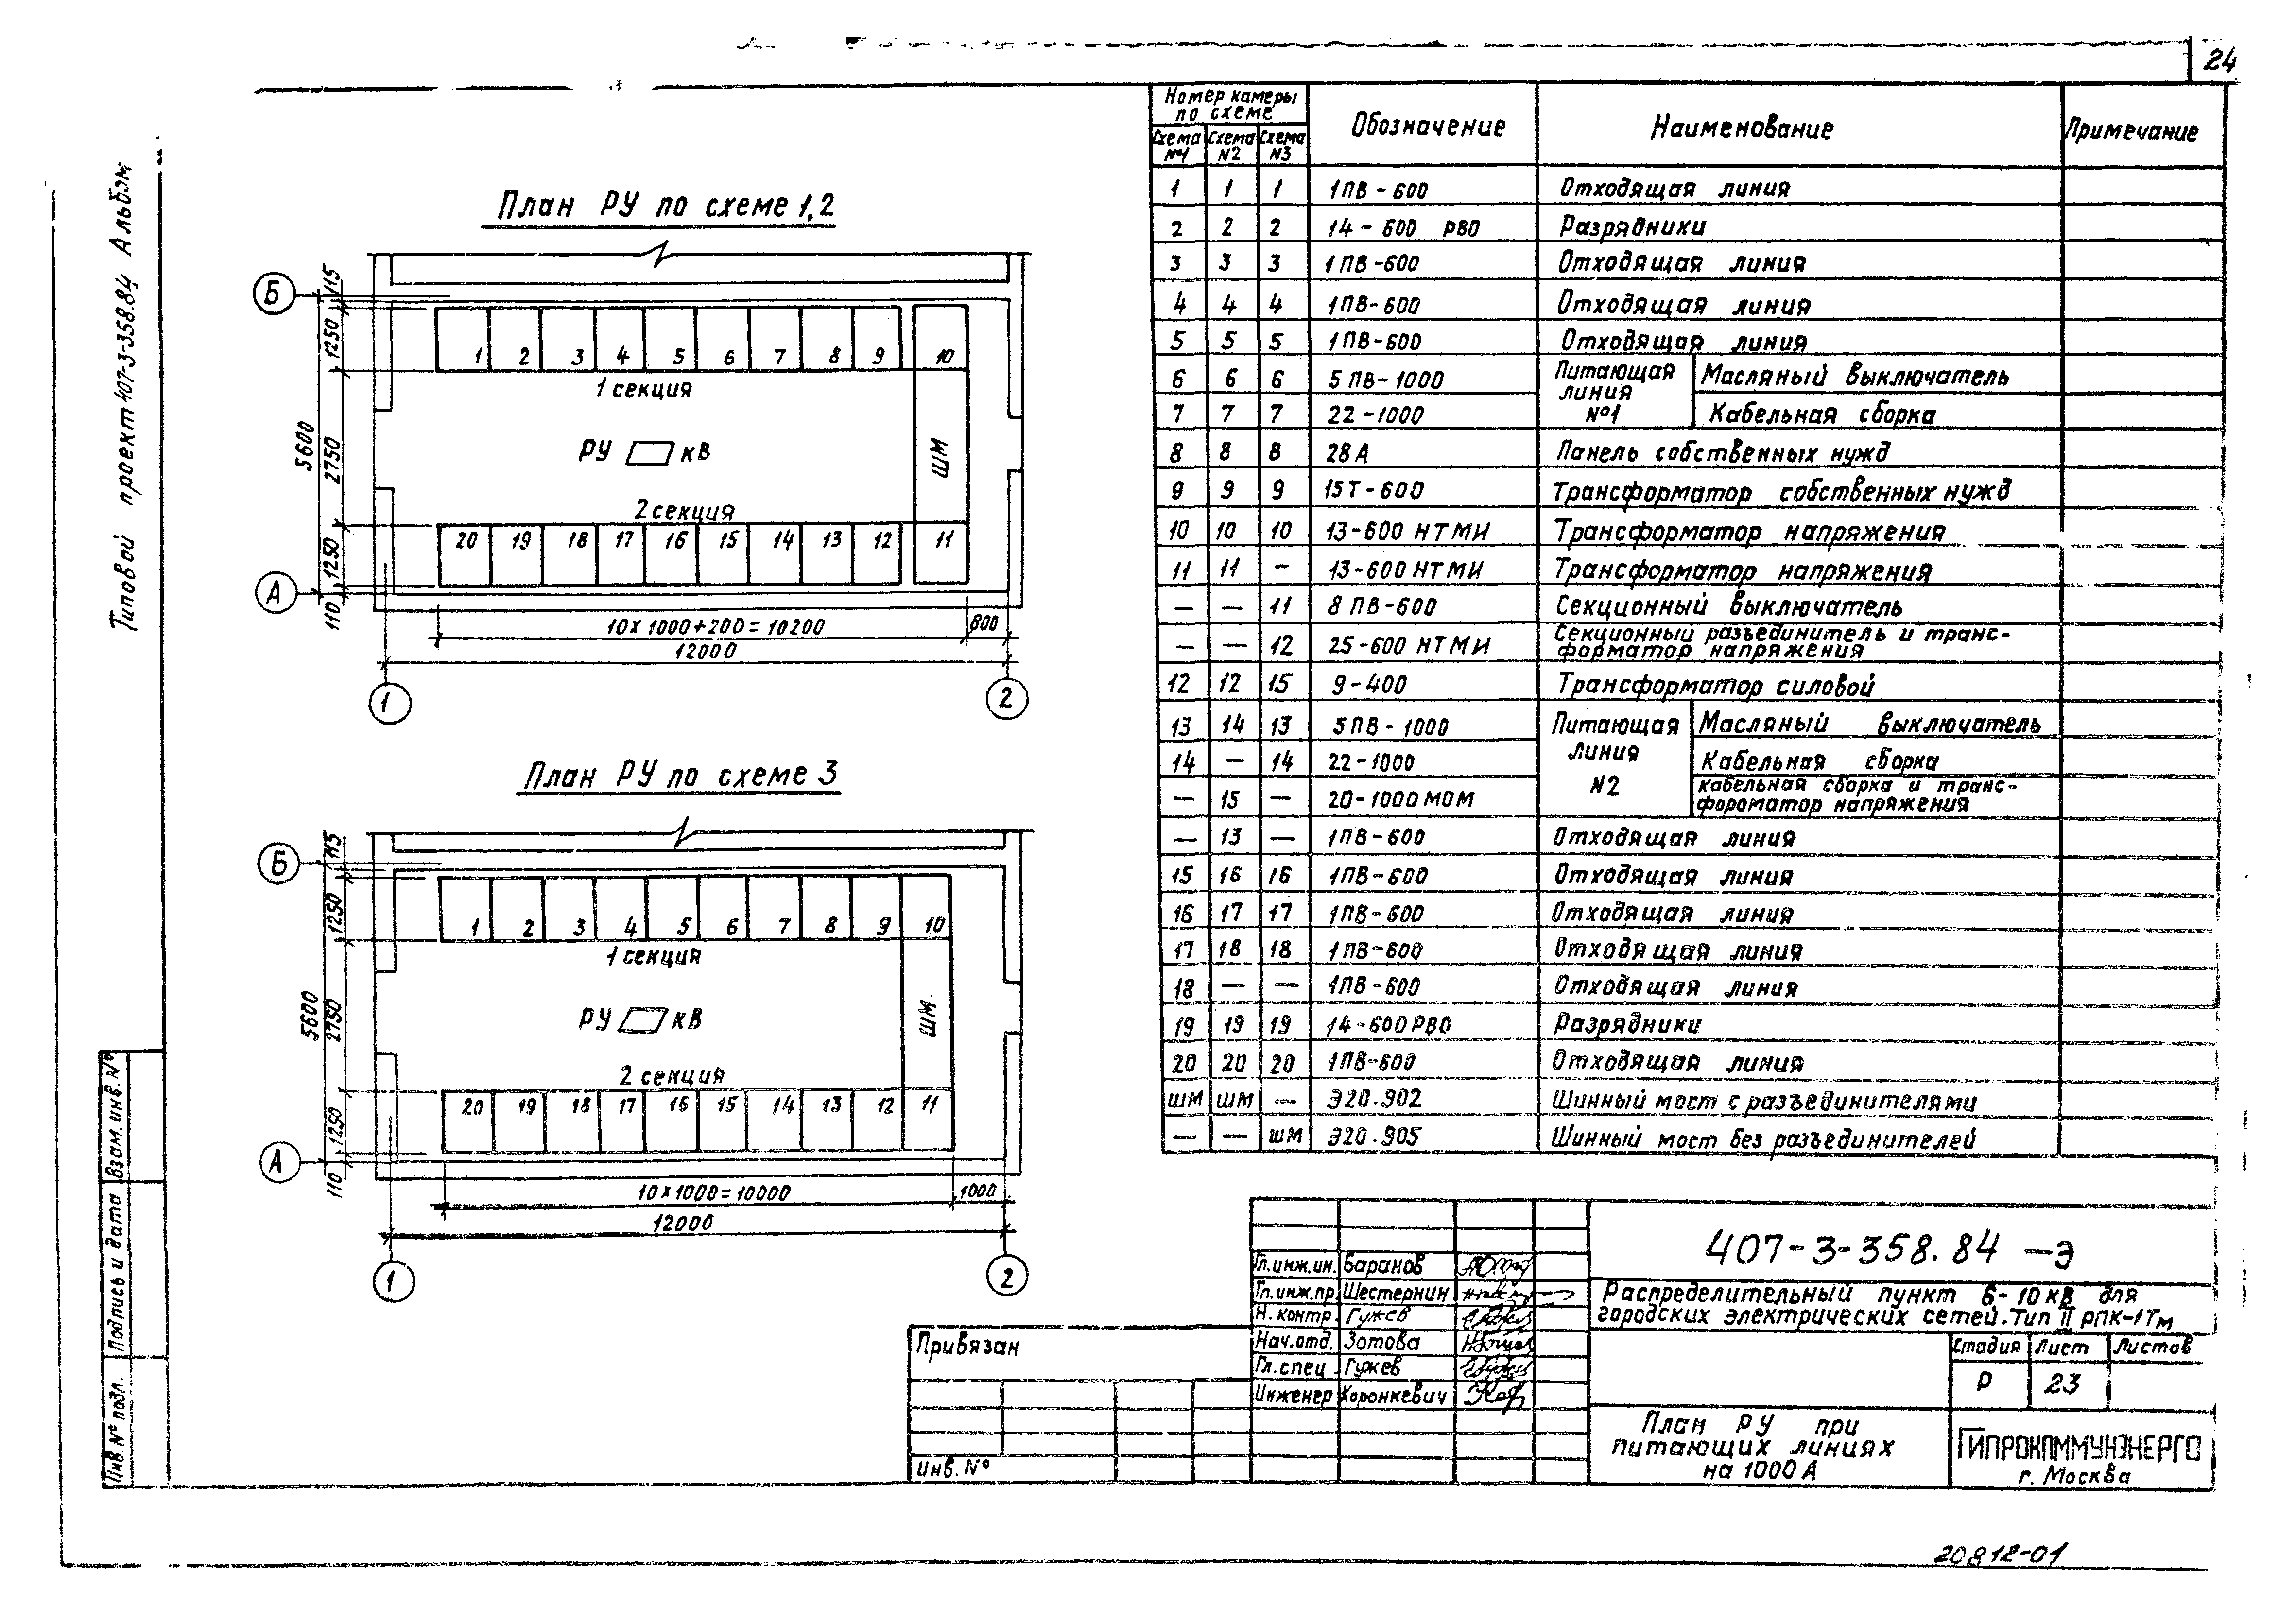 24
Типовой проект 407-3-358.84 Альбом
План РУ по схеме 1,2
Б
115
1250
2750
5600
1250
110
А
1 2 3 4 5 6 7 8 9 10
1 секция
РУ кВ
ШМ
2 секция
20 19 18 17 16 15 14 13 12 11
10х1000+200=10200
800
12000
1
2
План РУ по схеме 3
Б
115
1250
2750
5600
1250
110
А
1 2 3 4 5 6 7 8 9 10
1 секция
РУ кВ
ШМ.
2 секция
20 19 18 17 16 15 14 13 12 11
10х1000=10000
1000
12000
1
2
Номер камеры по схеме Обозначение Наименование Примечание
Схема №1 Схема N2 Схема N3
1 1 1 1ПВ-600 Отходящая линия
2 2 2 14-600 РВО Разрядники
3 3 3 1ПВ-600 Отходящая линия
4 4 4 1ПВ-600 Отходящая линия
5 5 5 1ПВ-600 Отходящая линия
6 6 6 5ПВ-1000 Питающая линия №1 Масляный выключатель
7 7 7 22-1000 Кабельная сборка
8 8 8 28А Панель собственных нужд
9 9 9 15Т-600 Трансформатор собственных нужд
10 10 10 13-600 НТМИ Трансформатор напряжения
11 11 — 13-600 НТМИ Трансформатор напряжения
— — 11 8ПВ-600 Секционный выключатель
— — 12 25-600 НТМИ Секционный разъединитель и транс-
форматор напряжения
12 12 15 9-400 Трансформатор силовой
13 14 13 5ПВ-1000 Питающая линия N2 Масляный выключатель
14 — 14 22-1000 Кабельная сборка
— 15 — 20-1000МОМ кабельная сборка и транс-
фороматор напряжения
— 13 — 1ПВ-600 Отходящая линия
15 16 16 1ПВ-600 Отходящая линия
16 17 17 1ПВ-600 Отходящая линия
17 18 18 1ПВ-600 Отходящая линия
18 — — 1ПВ-600 Отходящая линия
19 19 19 14-600РВО Разрядники
20 20 20 1ПВ-600 Отходящая линия
ШМ ШМ — Э20.902 Шинный мост с разъединителями
— — ШМ Э20.905 Шинный мост без разъединителей
Взам. инв. №
Подпись и дата
Инв. № подл.
Привязан
Инв. №
Гл.инж.ин. Баранов
Гл.инж.пр. Шестернин
Н.контр. Гужев
Нач.отд. Зотова
Гл.спец. Гужев
Инженер Хоронкевич
407-3-358.84 -Э
Распределительный пункт 6-10кВ для
городских электрических сетей. Тип II РПК-1Тм
Стадия Лист Листов
Р 23
План РУ при
питающих линиях
на 1000А
ГИПРОКОММУНЭНЕРГО
г. Москва
20812-01